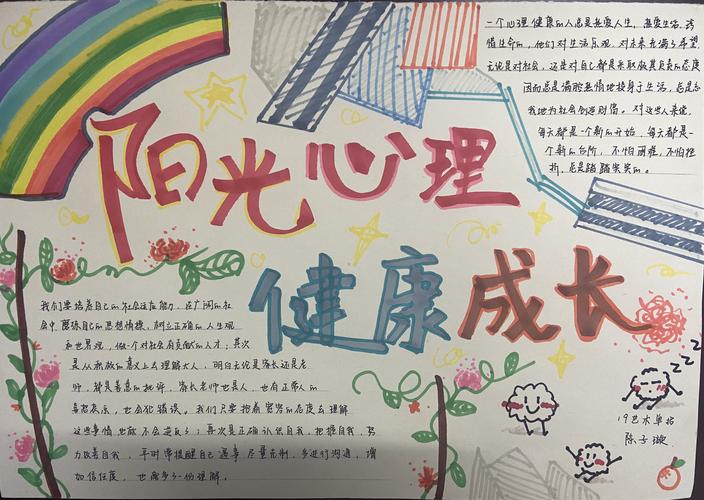 阳光心理
健康成长
一个心理健康的人总是热爱人生,热爱生活,珍
惜生命的,他们对生活乐观,对未来充满了希望,
无论是对社会,还是对自己都是采取做其负责的态度
因而总是满腔热情地投身于生活,总是忘
我地为社会创造财富。对这些人来说,
每天都是一个新的开始,每天都是一
个新的台阶,不怕困难,不怕挫
折,总是踏踏实实的。
我们要培养自己的社会适应能力,在广阔的社
会中磨练自己的思想情操,树立正确的人生观
和世界观,做一个对社会有贡献的人才;其次
是从积极的意义上去理解大人,明白无论是家长还是老
师,都是善意的批评,家长老师也是人,也有正常人的
喜怒哀乐,也会犯错误。我们只要抱着宽容的态度去理解
这些事情也就不会逆反了;再次是正确认识自我,把握自我,努
力改善自我,平时常提醒自己遇事尽量克制,多进行沟通,增
加信任度,也需多一份理解。
19艺术单招
陈子璇
z z z